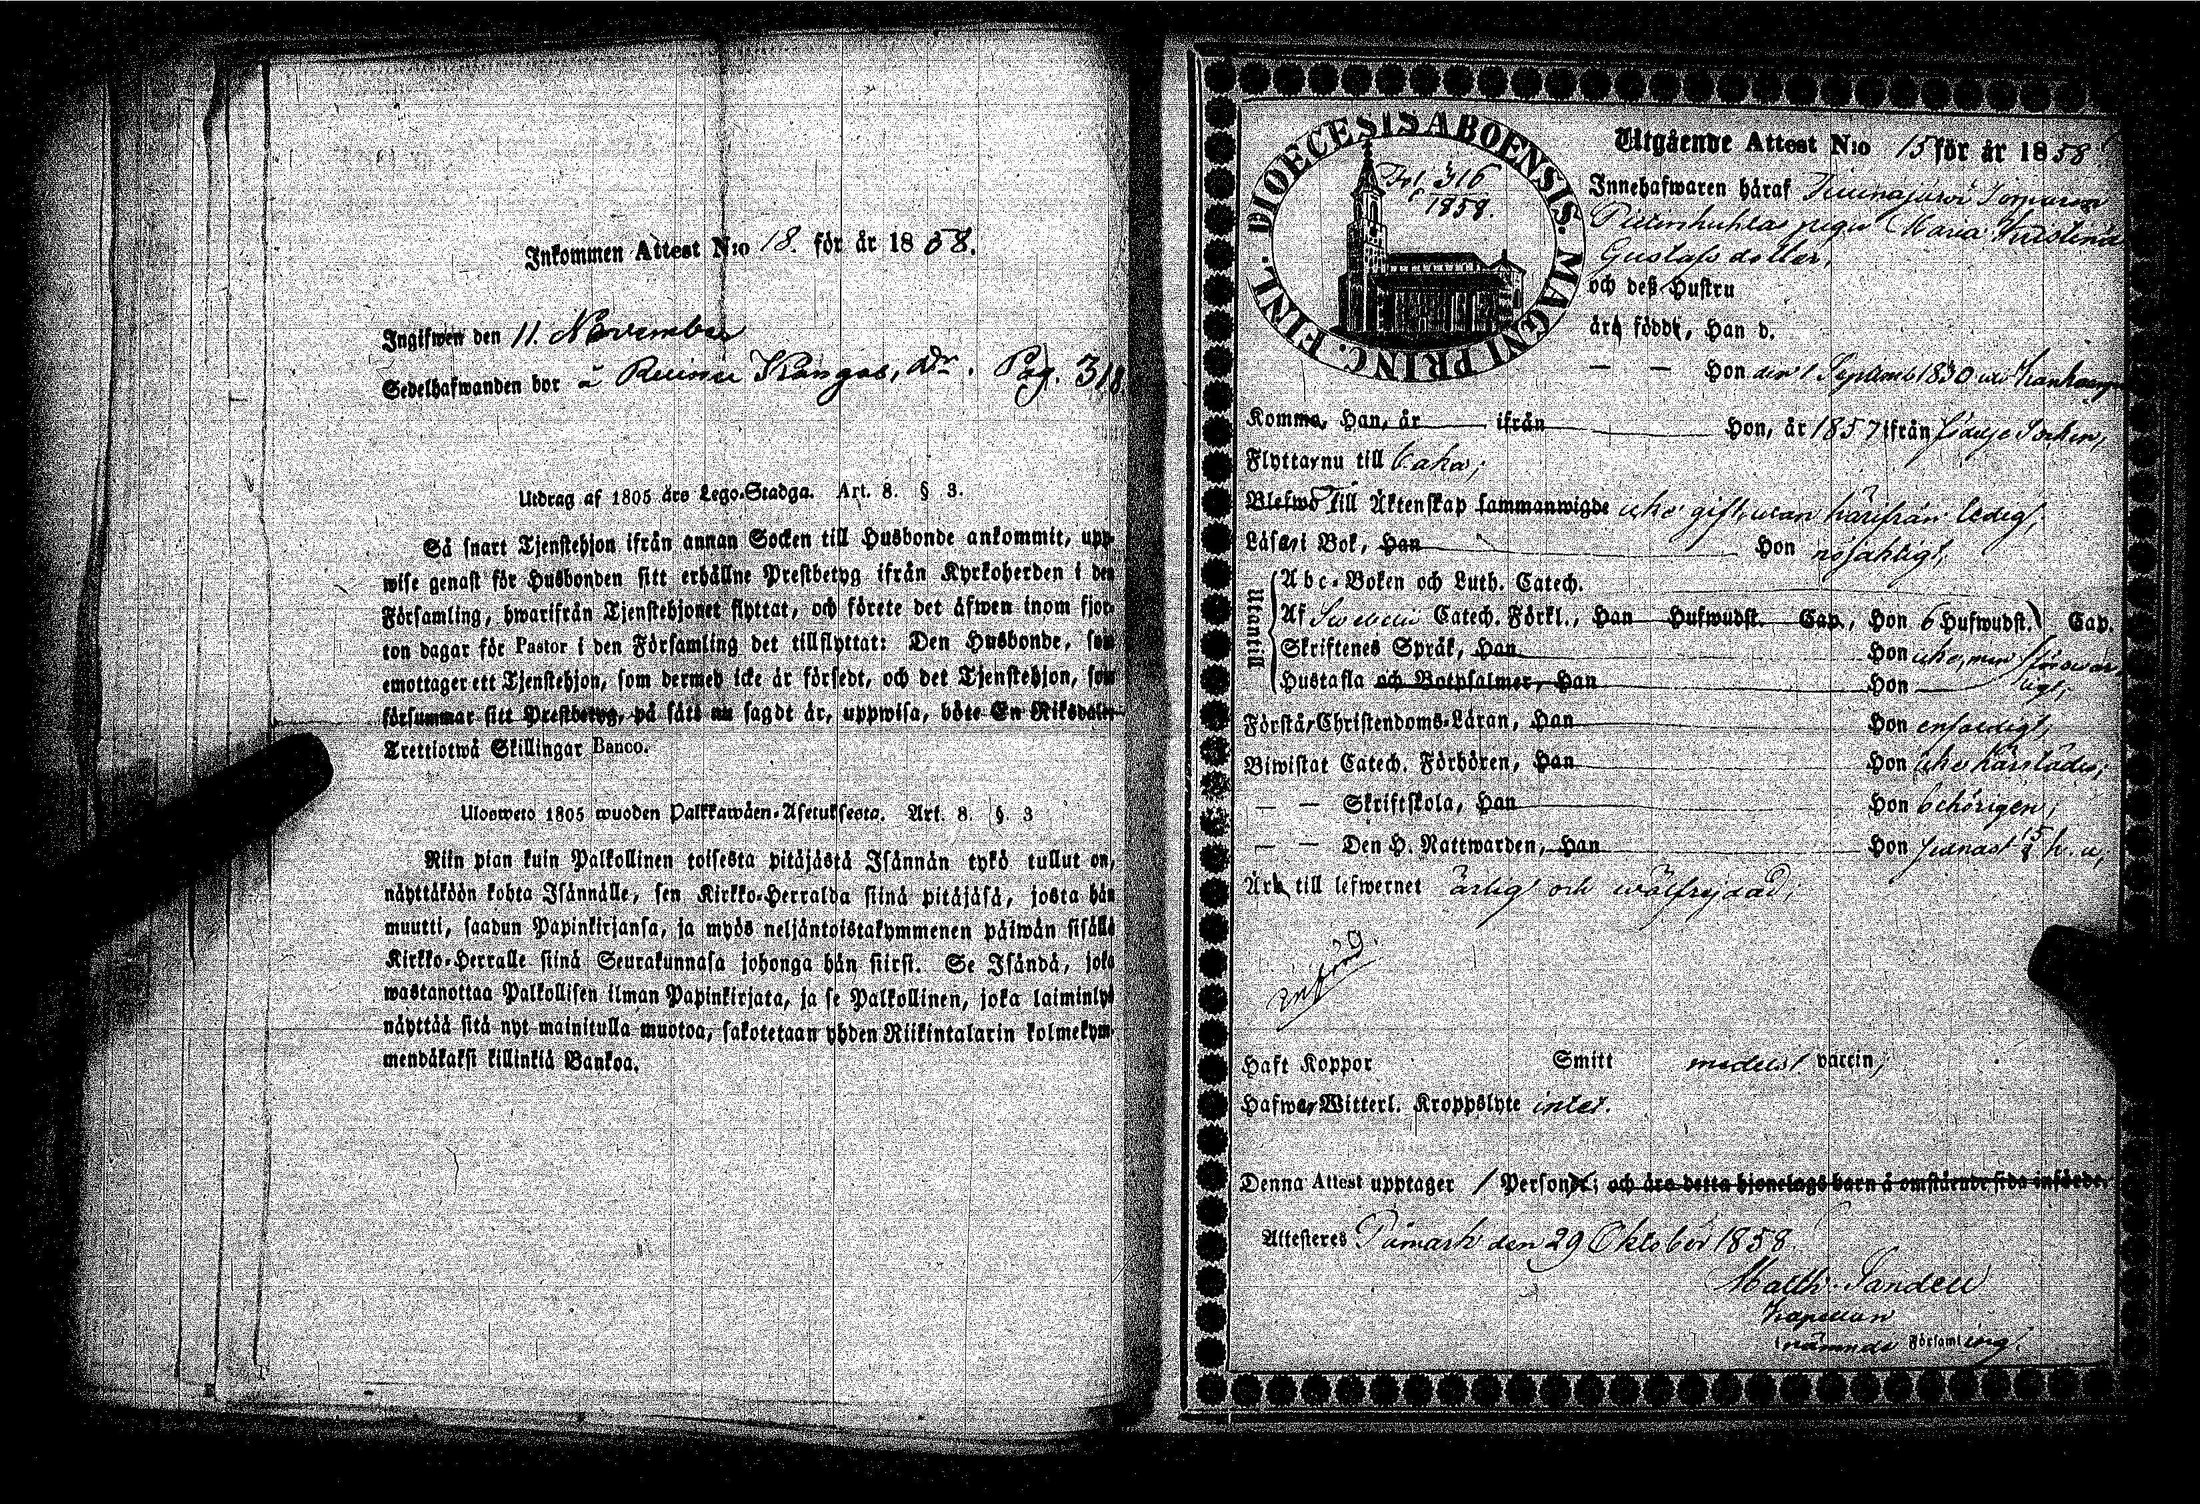 Inkommen Attest N:o 18. för år 1858.
Ingifwen den 11. November
Sedelhafwanden bor å Kangas, Pag. 318
Utdrag af 1805 års Lego-Stadga. Art. 8. § 3.
Så snart Tjenstehjon ifrån annan Socken till Husbonde ankommit, upp-
wise genast för Husbonden sitt erhållne Prestbetyg ifrån Kyrkoherden i den
Församling, hwarifrån Tjenstehjonet flyttat, och förete det äfwen inom fjor-
ton dagar för Pastor i den Församling det tillflyttat: Den Husbonde, som
emottager ett Tjenstehjon, som dermed icke är försedt, och det Tjenstehjon, som
försummar sitt Prestbetyg, på sätt nu sagdt är, uppwisa, böte En Riksdaler
Trettiotwå Skillingar Banco.
Ulosweto 1805 wuoden Palkkawäen-Asetuksesta. Art. 8. §. 3
Niin pian kuin Palkollinen toisesta pitäjästä Isännän tykö tullut on,
näyttäköön kohta Isännälle, sen Kirkko-Herralda siinä pitäjäsä, josta hän
muutti, saadun Papinkirjansa, ja myös neljäntoistakymmenen päiwän sisällä
Kirkko-Herralle siinä Seurakunnasa johonga hän siirsi. Se Isändä, joka
wastanottaa Palkollisen ilman Papinkirjata, ja se Palkollinen, joka laiminlyö
näyttää sitä nyt mainitulla muotoa, sakotetaan yhden Riikintalarin kolmekym-
mendäkaksi killinkiä Bankoa.
DIOECESIS ABOENSIS. MAGNI PRINC. FINL.
Fol. 316
1858.
Utgående Attest N:o 15 för år 1858
Innehafwaren häraf
pigan Maria Kristina
Gustafsdotter,
och deß Hustru
äro födde, Han d.
— — Hon den 1 Septemb 1830 uti
Komma, Han, år ifrån Hon, år 1857 ifrån
Flyttar nu till
Blefwo Till Äktenskap sammanwigde icke gift, utan härifrån ledig,
Läsa i Bok, Han Hon nöjaktigt,
Utantill
Abc-Boken och Luth. Catech.
Af Svebelii Catech. Förkl., Han Hufwudst. Cap., Hon 6 Hufwudst. Cap.
Skriftenes Språk, Han Hon icke, men försvar-
Hustafla och Botpsalmer, Han Hon — ligt;
Förstår Christendoms-Läran, Han Hon enfaldigt,
Biwistat Catech. Förhören, Han Hon icke härstädes;
— — Skriftskola, Han Hon behörigen;
— — Den H. Nattwarden, Han Hon
Är till lefwernet ärlig och wälfrejdad;
Haft Koppor Smitt medelst vaccin,
Hafwer Witterl. Kroppslyte intet.
Denna Attest upptager 1 Person; och äro detta hjonelags barn å omstående sida införde.
Attesteres Påmark den 29 Oktober 1858.
Matth. Sandell
Kapellan
i nämnde Församling.